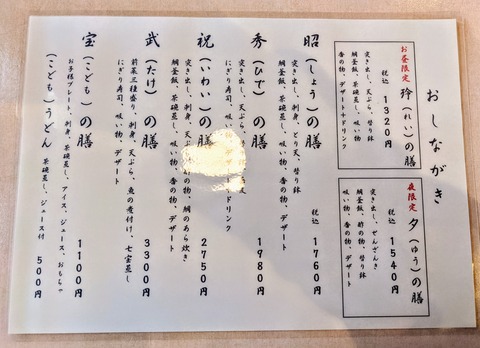 おしながき
お昼限定 玲(れい)の膳
税込 1320円
突き出し、天ぷら、替り鉢
鯛釜飯、茶碗蒸し、吸い物
香の物、デザート+ドリンク
夜限定 夕(ゆう)の膳
税込 1540円
突き出し、せんざんき
鯛釜飯、酢の物、替り鉢
吸い物、香の物、デザート
昭(しょう)の膳 税込 1760円
突き出し、刺身、とり天、替り鉢
鯛釜飯、茶碗蒸し、吸い物、香の物、デザート
秀(ひで)の膳 1980円
突き出し、刺身、天
にぎり寿司、吸い ドリンク
祝(いわい)の膳 2750円
突き出し、刺身、天ぷら、酢の物、鯛のあら炊き
鯛釜飯、茶碗蒸し、吸い物、香の物、デザート
武(たけ)の膳 3300円
前菜三種盛り、刺身、天ぷら、魚の煮付け、七宝蒸し
にぎり寿司、吸い物、デザート
宝(こども)の膳 1100円
お子様プレート、刺身、茶碗蒸し、アイス、ジュース、おもちゃ
(こども)うどん 茶碗蒸し、ジュース付 500円